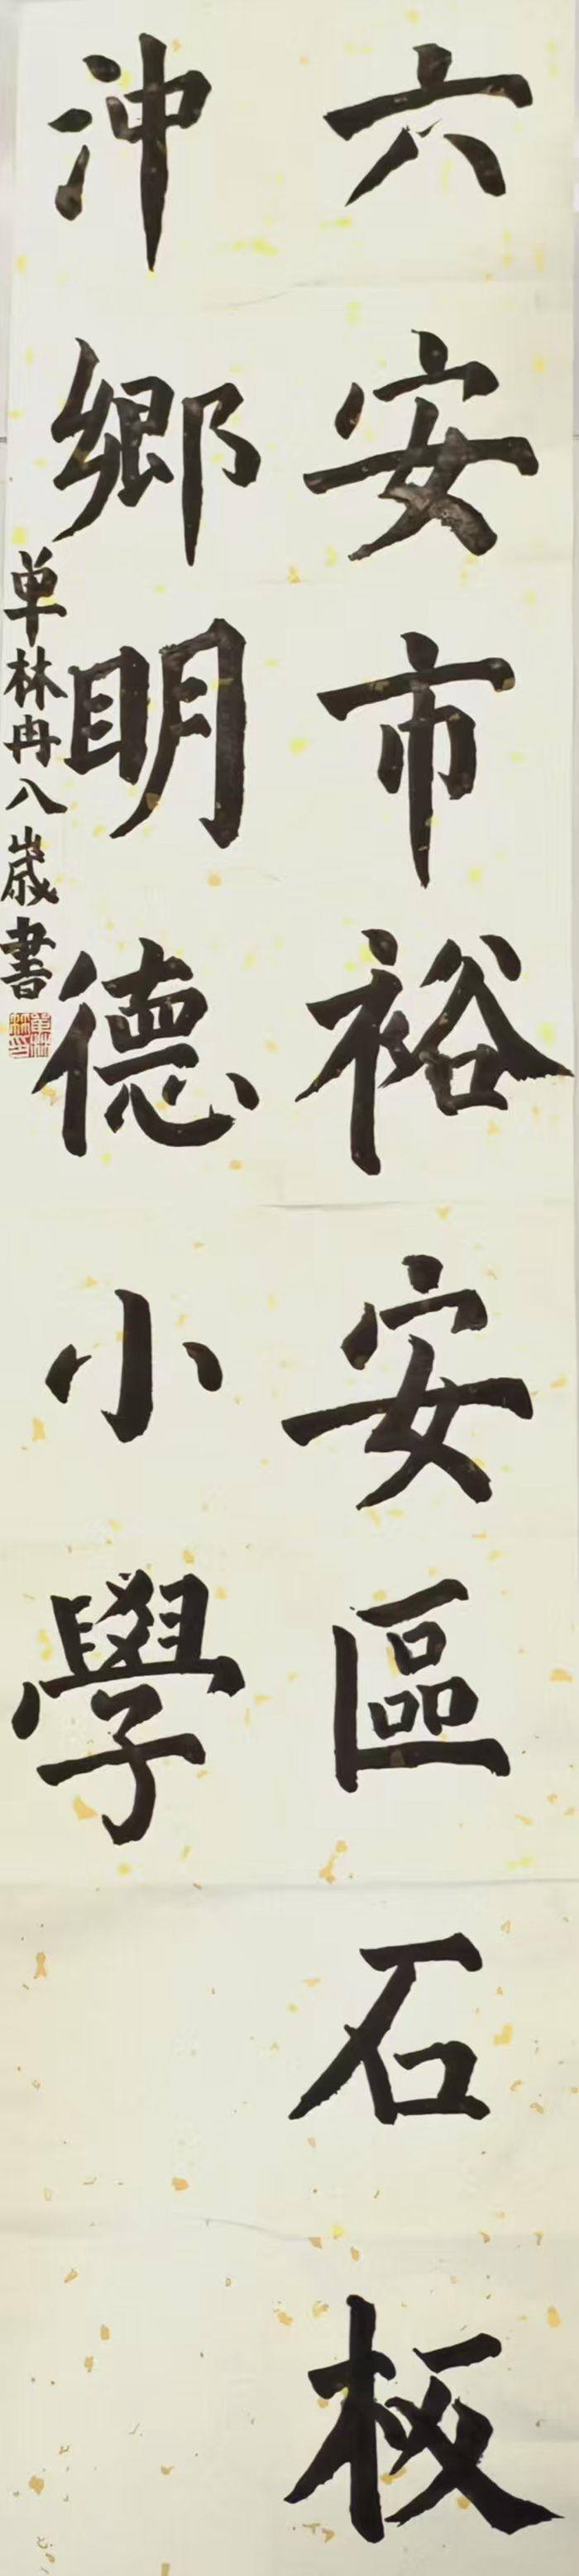 六安市裕安區石板
沖鄉明德小學
单林冉八歲書